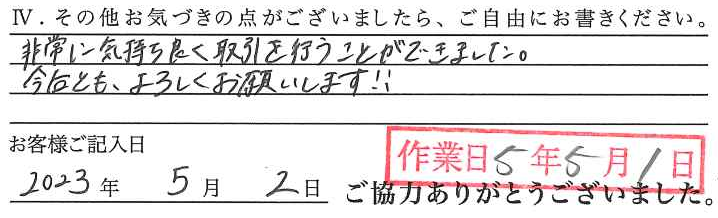 Ⅳ．その他お気づきの点がございましたら、ご自由にお書きください。
非常に気持ち良く取引を行うことができました。
今後とも、よろしくお願いします!!
お客様ご記入日
作業日5年5月1日
2023年 5月 2日
ご協力ありがとうございました。